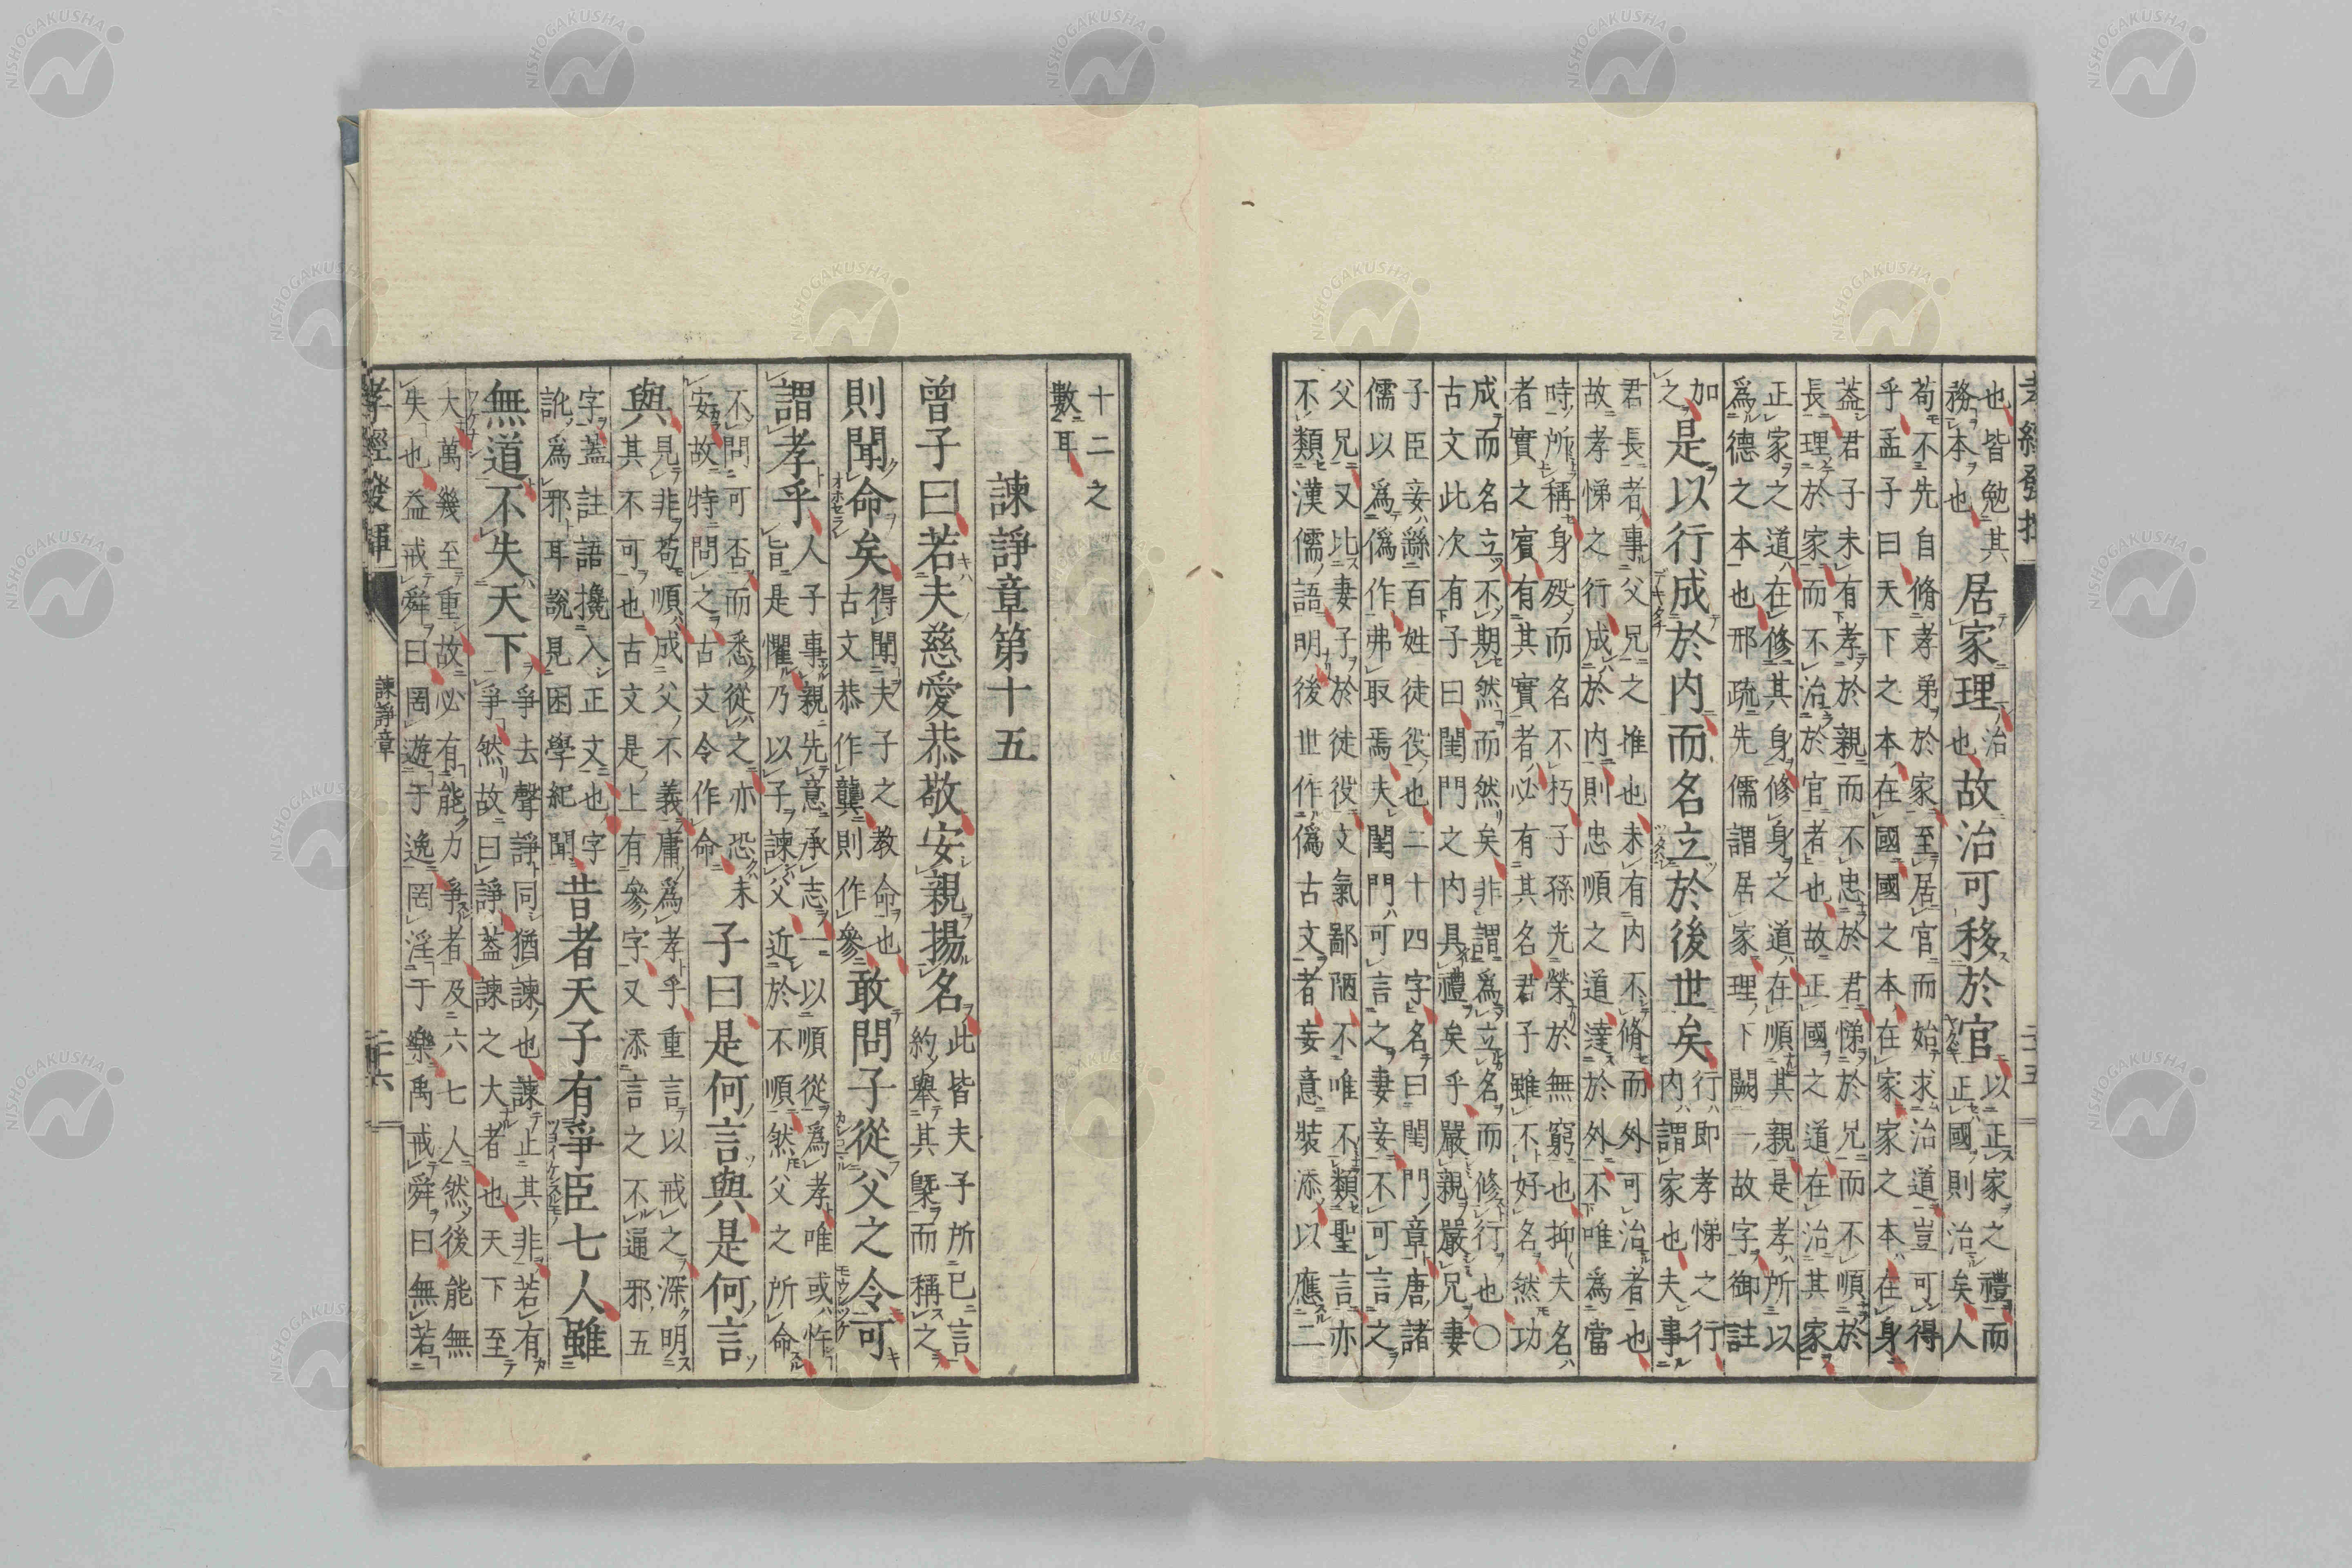 二十五
也皆勉其
務本也
居家理
治
也
故治可移於官
以正家之禮而
正國則治矣人
苟不先自脩孝弟於家至居官而始求治道豈可得
乎孟子曰天下之本在國國之本在家家之本在身
蓋君子未有孝於親而不忠於君悌於兄而不順於
長理於家而不治於官者也故正國之道在治其家
正家之道在修其身修身之道在順其親是孝所以
爲德之本也邢疏先儒謂居家理下闕一故字御註
加
之
是以行成於內而名立於後世矣
行即孝悌之行
內謂家也夫事
君長者事父兄之推也未有內不脩而外可治者也
故孝悌之行成於內則忠順之道達於外不唯為當
時所稱身歿而名不朽子孫光榮於無窮也抑夫名
者實之賓有其實者必有其名君子雖不好名然功
成而名立不期然而然矣非謂為立名而修行也〇
古文此次有子曰閨門之內具禮矣乎嚴親嚴兄妻
子臣妾繇百姓徒役也二十四字名曰閨門章唐諸
儒以爲僞作弗取焉夫閨門可言之妻妾不可言之
父兄又比妻子於徒役文氣鄙陋不唯不類聖言亦
不類漢儒語明後世作僞古文者妄意裝添以應二
十二之
數耳
諫諍章第十五
曾子曰若夫慈愛恭敬安親揚名
此皆夫子所已言
約舉其槩而稱之
則聞命矣
得聞夫子之教命也
古文恭作龔則作參
敢問子從父之令可
謂孝乎
人子事親先意承志一以順從爲孝唯或怍
旨是懼乃以子諫父近於不順然父之所命
不問可否而悉從之亦恐未
安故特問之古文令作命
子曰是何言與是何言
與
見非苟順成父不義庸爲孝乎重言以戒之深明
其不可也古文是上有參字又添言之不通邪五
字蓋註語攙入正文也字
訛爲邪耳說見困學紀聞
昔者天子有爭臣七人雖
無道不失天下
爭去聲諍同猶諫也諫止其非若有
爭然故曰諍蓋諫之大者也天下至
大萬幾至重故必有能力爭者及六七人然後能無
失也益戒舜曰罔遊于逸罔淫于樂禹戒舜曰無若
孝經發揮
諫諍章
二十六
NISHOGAKUSHA